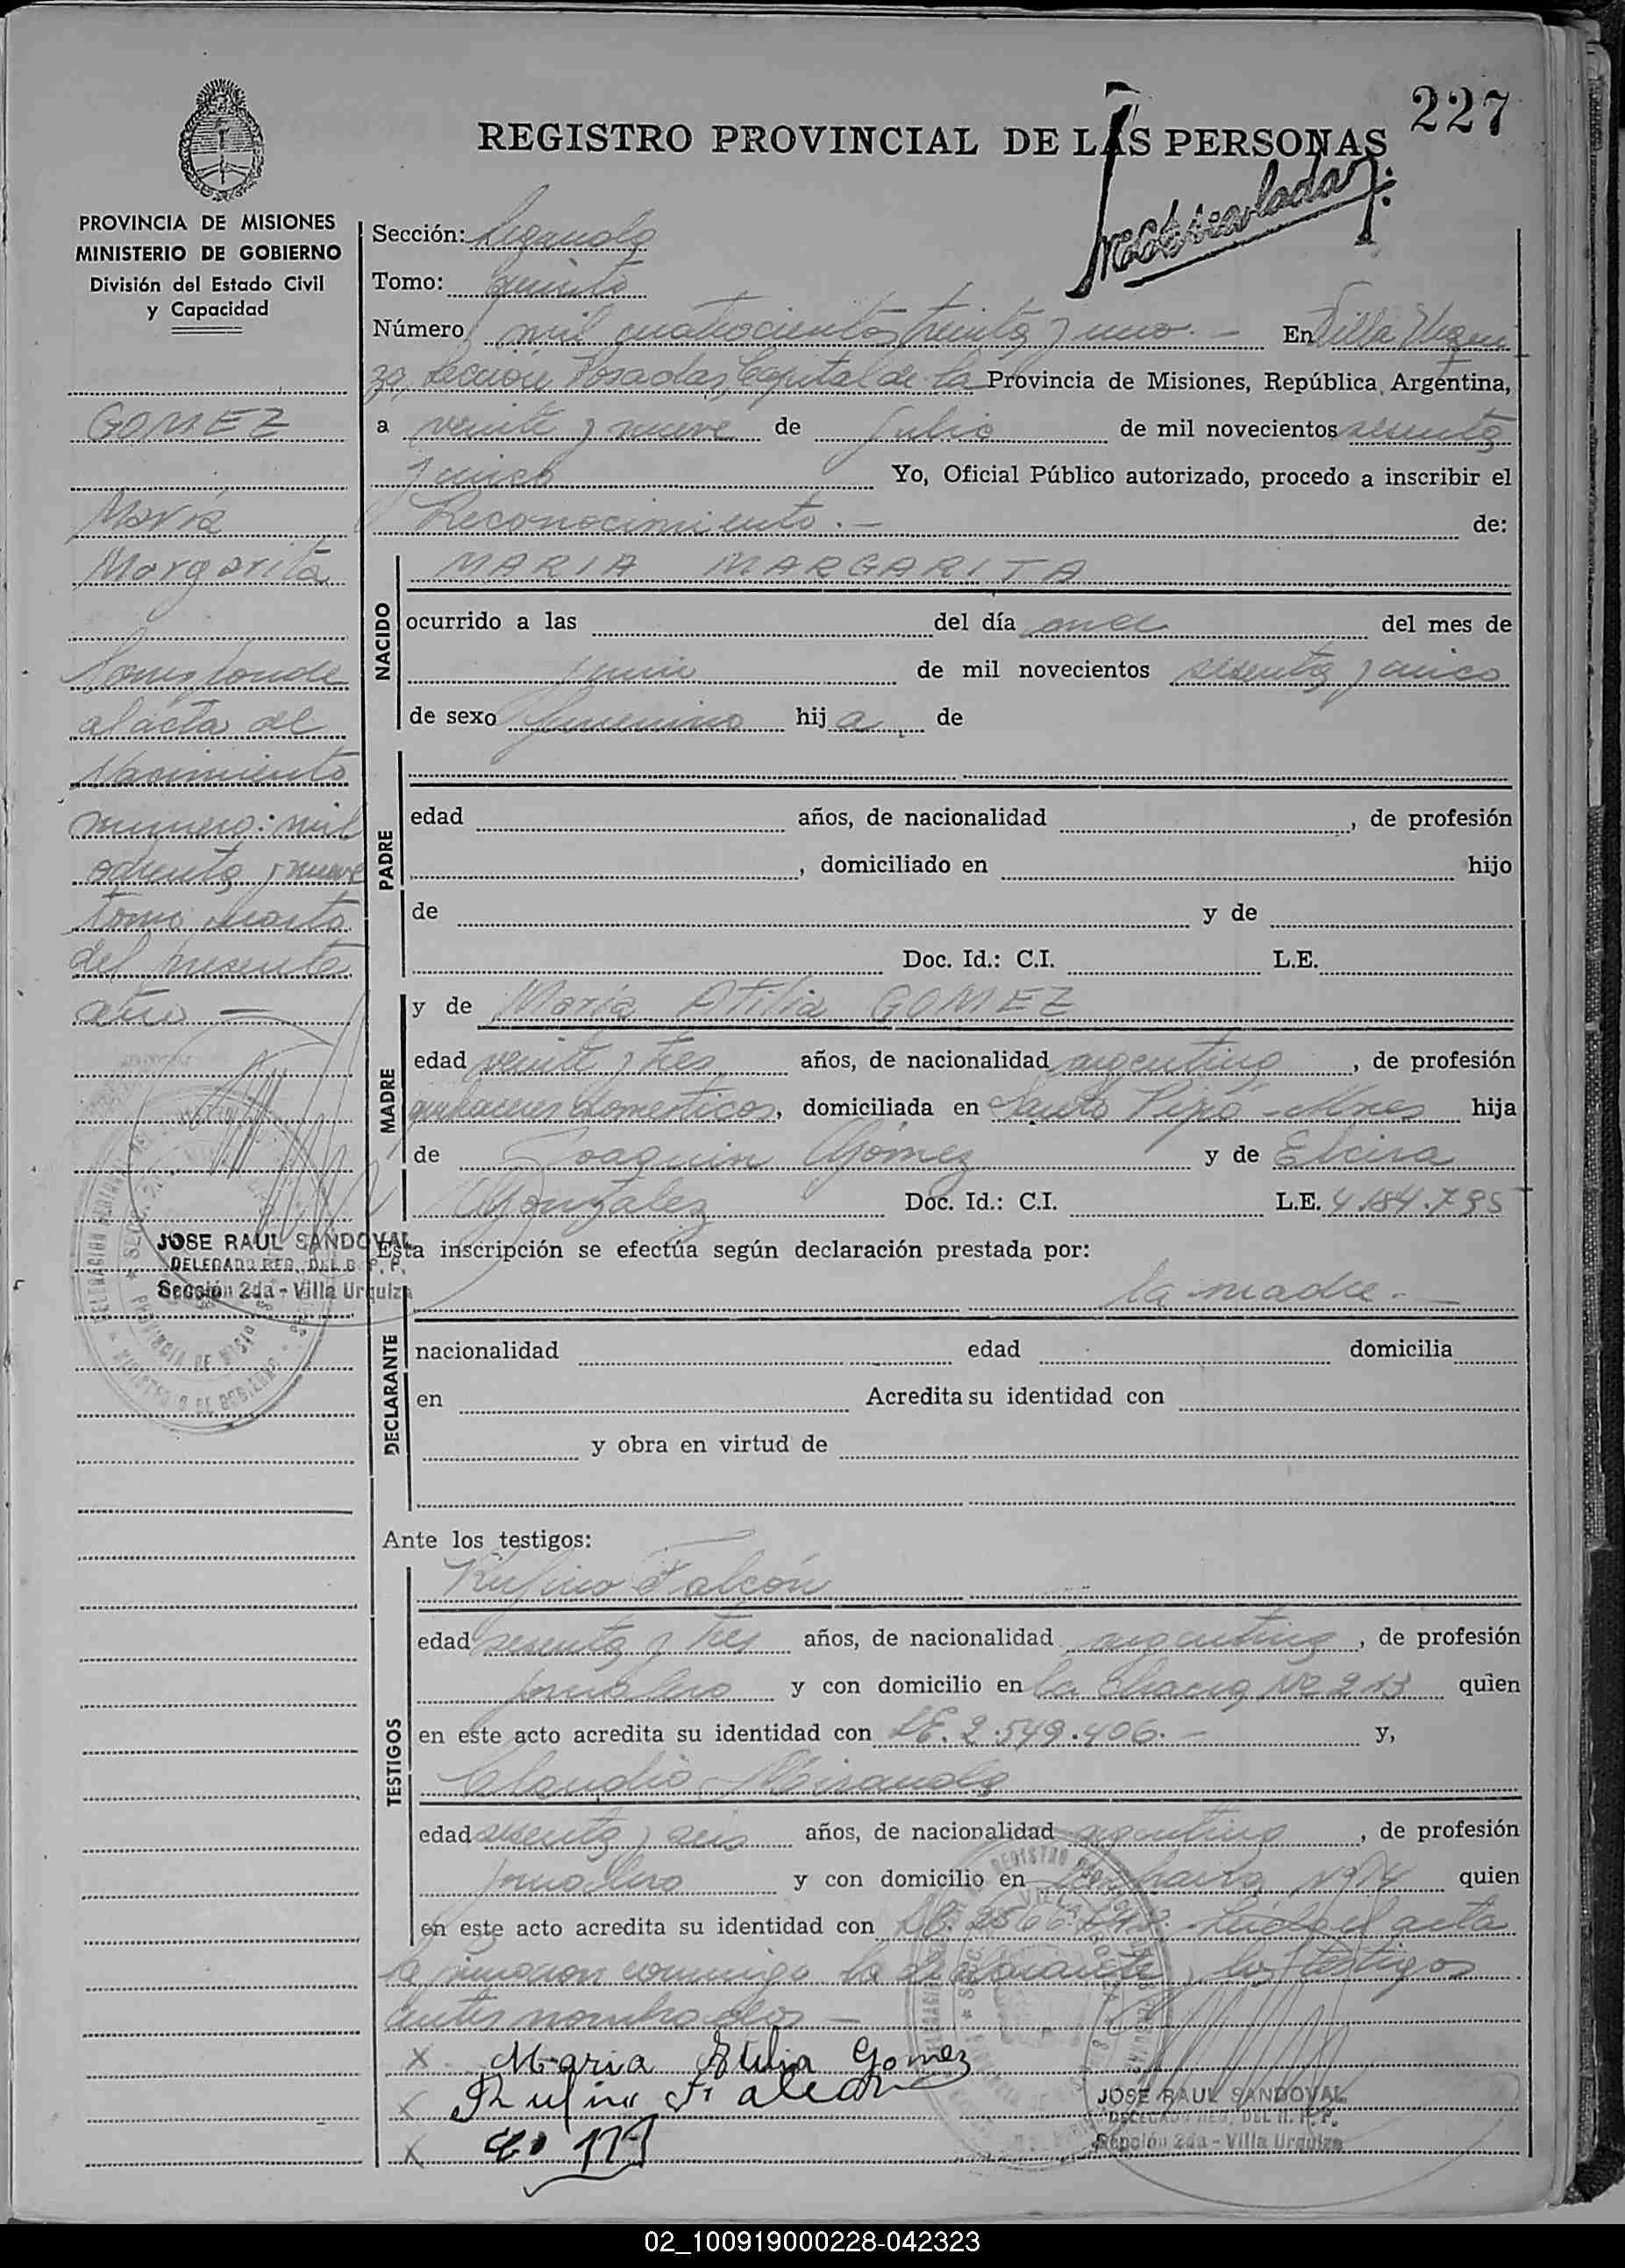 227
REGISTRO PROVINCIAL DE LAS PERSONAS
PROVINCIA DE MISIONES
MINISTERIO DE GOBIERNO
División del Estado Civil
y Capacidad
GOMEZ
María
Margarita
Corresponde
al acta de
Nacimiento
número: mil
ochenta y nueve
tomo cuarto
del presente
año
JOSE RAUL SANDOVAL
DELEGADO REG. DEL R. P. P.
Sección 2da - Villa Urquiza
Sección: Segunda
Tomo: quinto
Número mil cuatrocientos treinta y uno.- En Villa Urqui
za, Sección Posadas, Capital de la Provincia de Misiones, República Argentina,
a veinte y nueve de Julio de mil novecientos sesenta
y cinco Yo, Oficial Público autorizado, procedo a inscribir el
Reconocimiento.- de:
NACIDO
MARIA MARGARITA
ocurrido a las del día once del mes de
junio de mil novecientos sesenta y cinco
de sexo femenino hija de
PADRE
edad años, de nacionalidad , de profesión
, domiciliado en hijo
de y de
Doc. Id.: C.I. L.E.
MADRE
y de María Atilia GOMEZ
edad veinte y tres años, de nacionalidad argentina, de profesión
quehaceres domesticos, domiciliada en Santo Pipó - Mnes hija
de Joaquin Gómez y de Elcira
Gonzalez Doc. Id.: C.I. L.E. 4.184.795
Esta inscripción se efectúa según declaración prestada por:
la madre.-
DECLARANTE
nacionalidad edad domicilia
en Acredita su identidad con
y obra en virtud de
Ante los testigos:
TESTIGOS
Rufino Falcón
edad sesenta y tres años, de nacionalidad argentina, de profesión
jornalero y con domicilio en la Chacra Nº 213 quien
en este acto acredita su identidad con LE. 2.549.406.- y,
Claudio Miranda
edad sesenta y seis años, de nacionalidad argentino, de profesión
jornalero y con domicilio en la chacra Nº 14 quien
en este acto acredita su identidad con LE. Leida el acta
la firmaron conmigo la declarante y los testigos
antes nombrados -
x Maria Atilia Gomez
x Rufino Falcon
x
JOSE RAUL SANDOVAL
DELEGADO REG. DEL R. P. P.
Sección 2da - Villa Urquiza
02_100919000228-042323